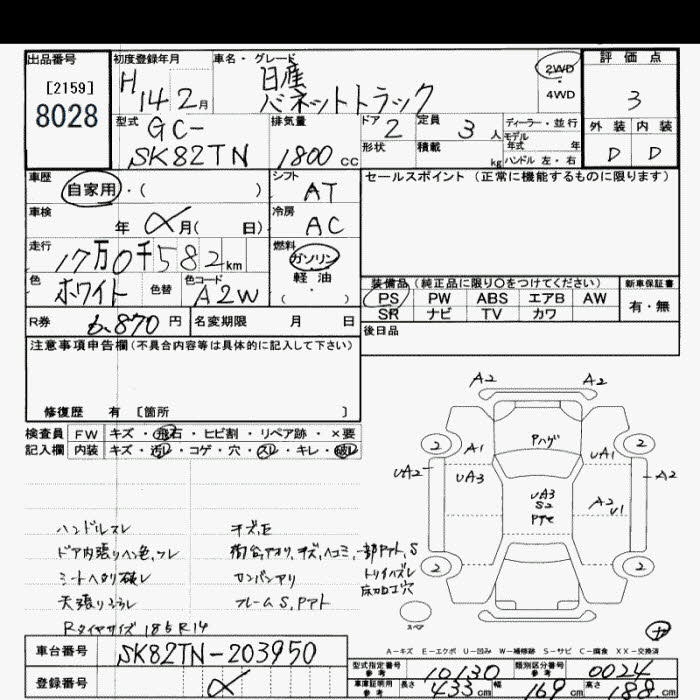 出品番号 初度登録年月 車名・グレード 評価点
[2159] H 14 2月 日産 2WD
8028 バネットトラック 4WD 3
型式 GC- 排気量 ドア 2 定員 3人 ディーラー・並行 外装 内装
SK82TN 1800cc 形状 積載 kg モデル年式 年 D D
ハンドル 左・右
車歴 自家用・( ) シフト AT セールスポイント(正常に機能するものに限ります)
車検 年 月( 日) 冷房 AC
走行 17万0千582km 燃料 ガソリン
軽油
( ・ )
色 ホワイト 色替 色コード A2W 装備品(純正品に限り○をつけてください) 新車保証書
PS PW ABS エアB AW 有・無
SR ナビ TV カワ
R券 6,870円 名変期限 月 日 後日品
注意事項申告欄(不具合内容等は具体的に記入して下さい)
修復歴 有 [箇所 ]
検査員 FW キズ・飛石・ヒビ割・リペア跡・×要
記入欄 内装 キズ・汚レ・コゲ・穴・スレ・キレ・破レ
A2 A2
2 Pハゲ 2
A1 UA1
UA2 UA3 UA3 A2 A2
S2 U1
2 2
ハンドルスレ キズ、E
ドア内張りヘン色、ワレ 荷台、アオリ、キズ、ヘコミ、一部Pアト、S
シートヘタリ破レ カンバンアリ トリイハズレ
床加工穴
天張り フレームS、Pアト
Rタイヤサイズ 185R14
スペア
A-キズ E-エクボ U-凹み W-補修跡 S-サビ C-腐食 XX-交換済
車台番号 SK82TN-203950 型式指定番号 参考 10130 類別区分番号 参考 0024
登録番号 車庫証明用 参考 長さ 433cm 幅 169cm 高さ 88cm